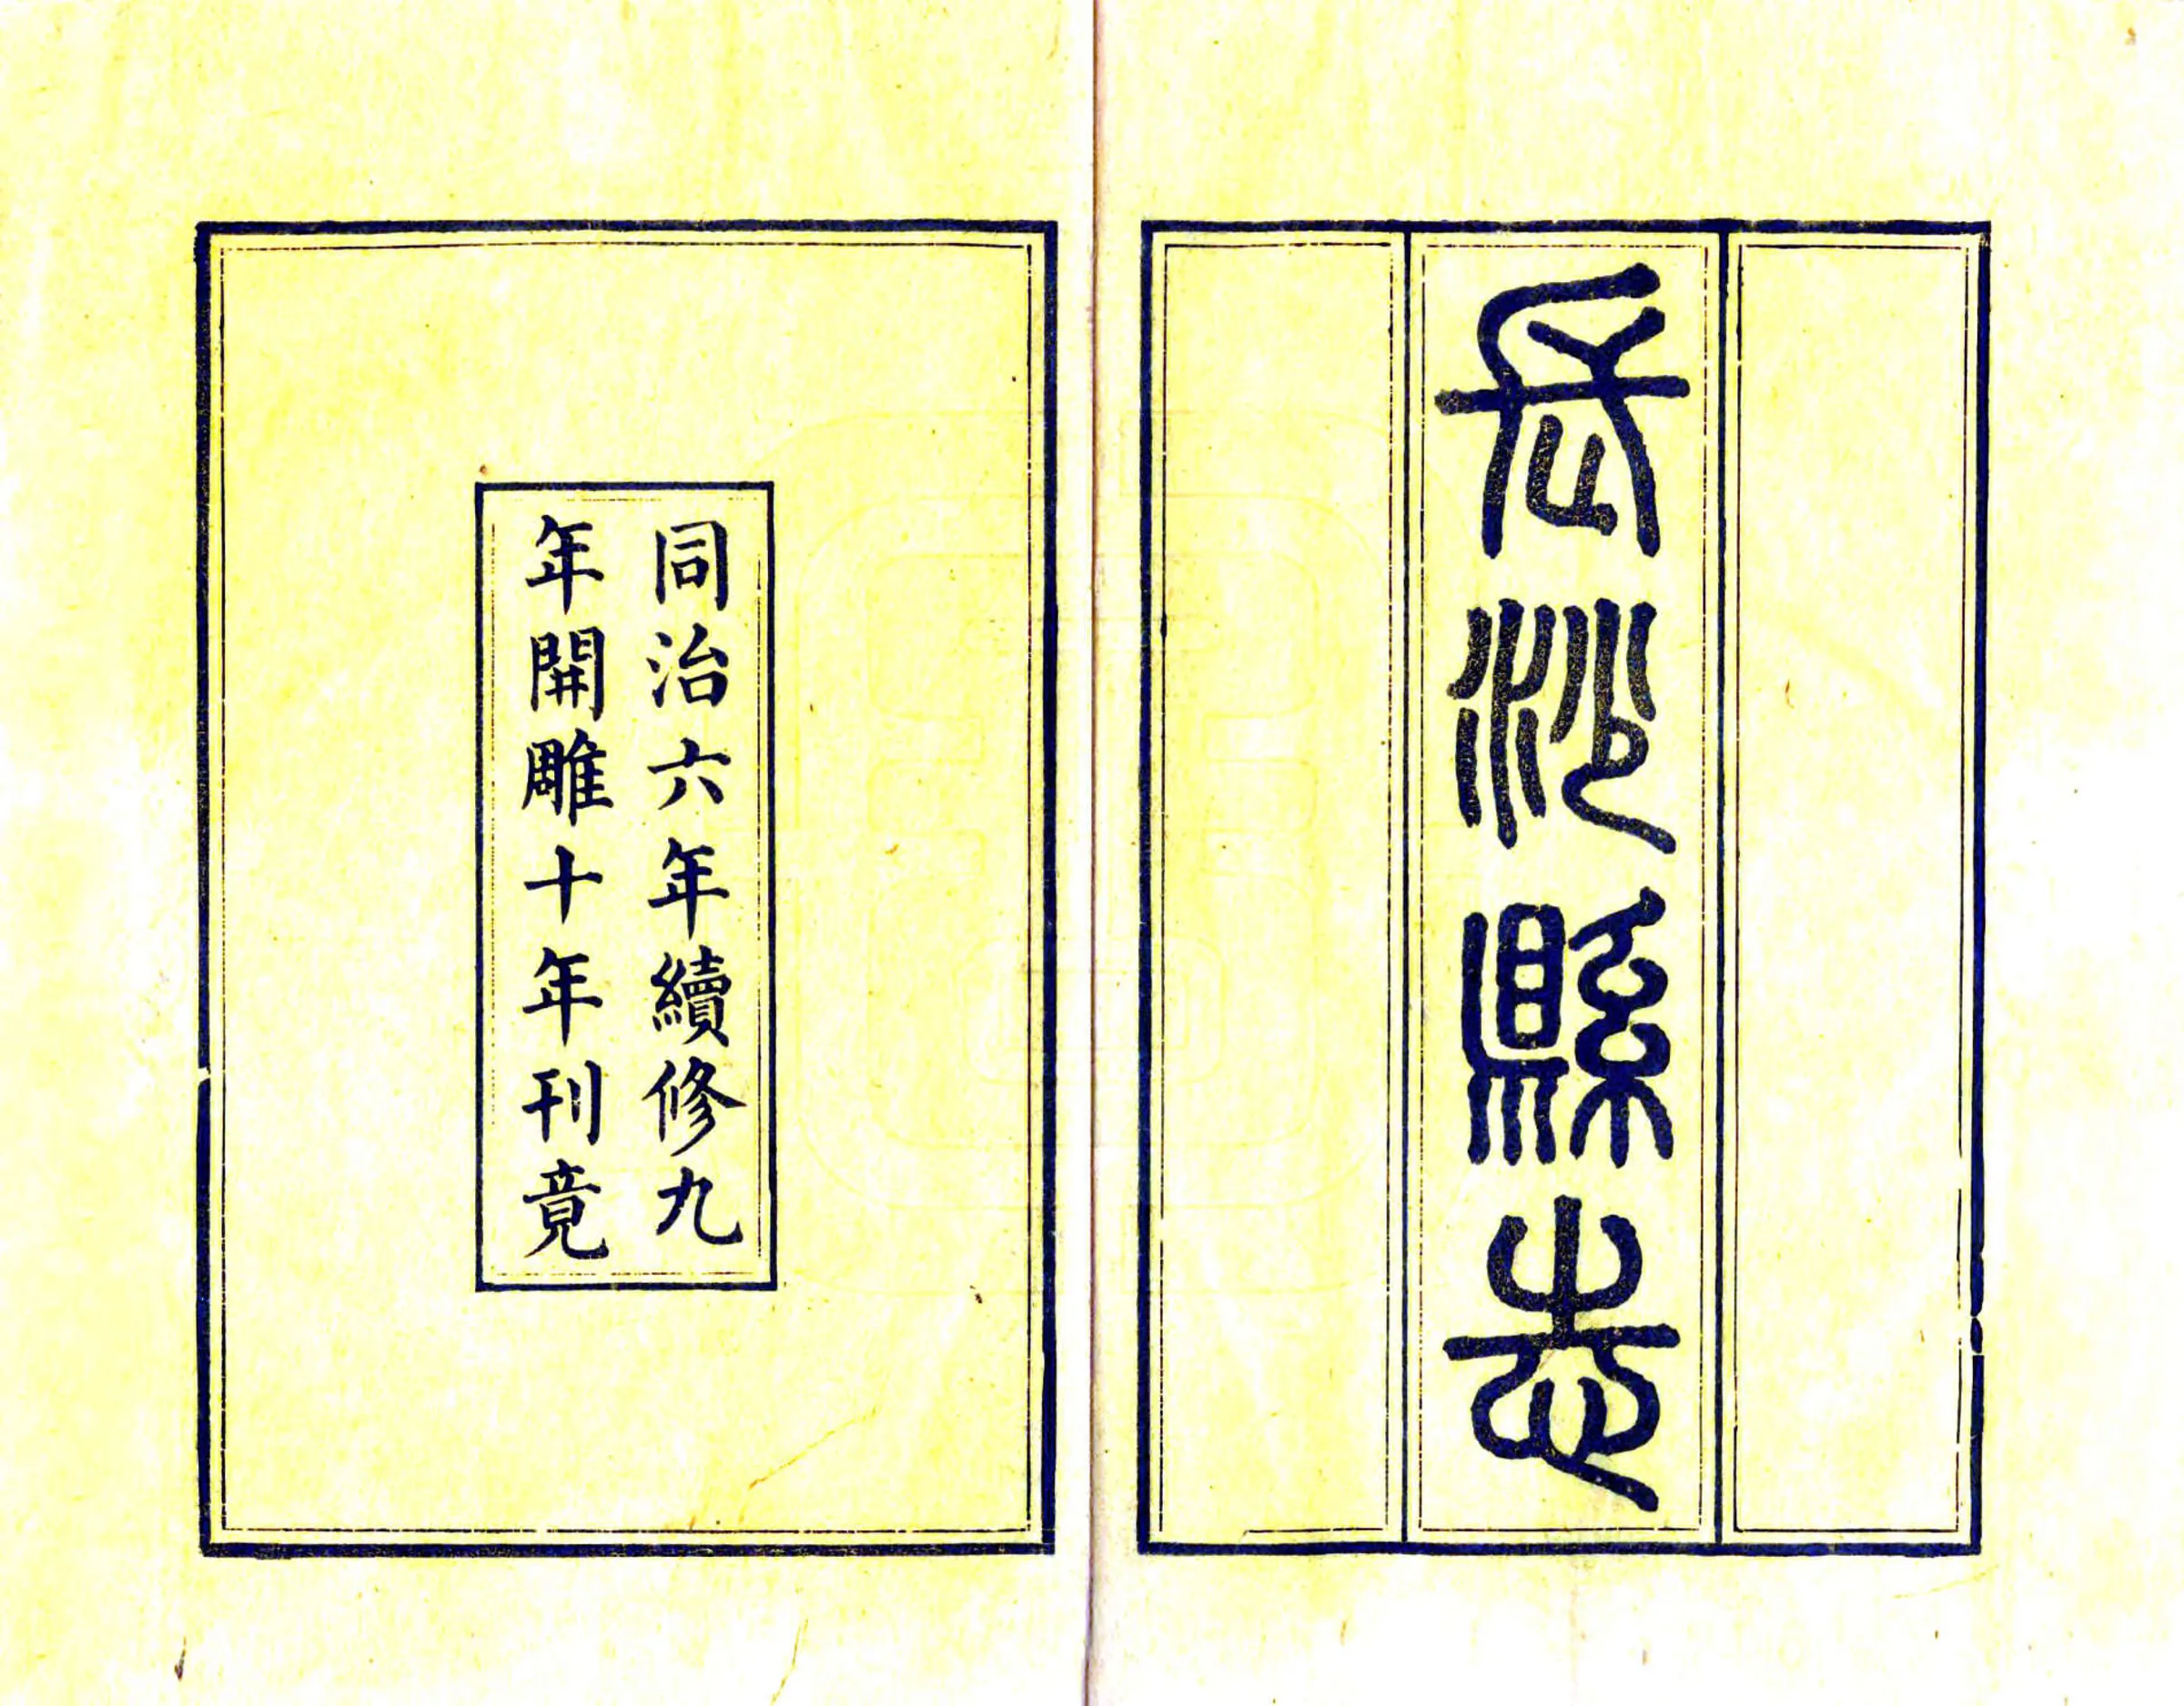 長沙縣志
同治六年續修九
年開雕十年刊竟